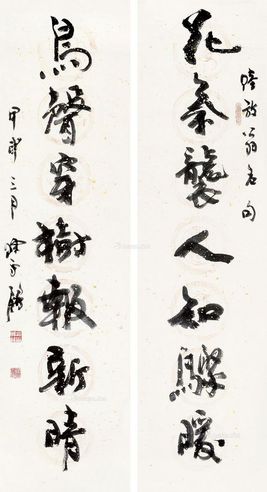 陸放翁名句
花氣襲人知驟暖
鳥聲穿樹報新晴
甲戌三月